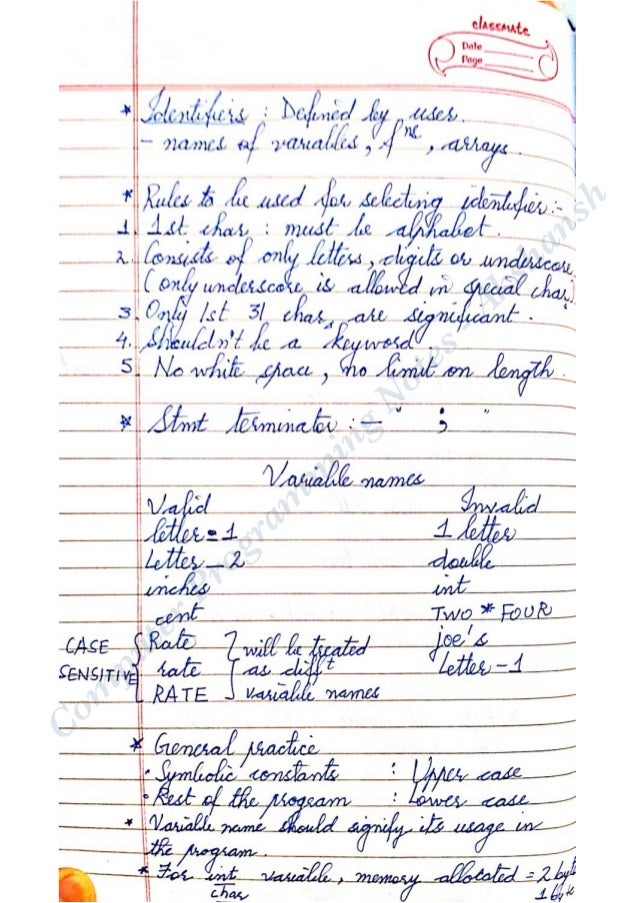 classmate
Date
Page
* Identifiers : Defined by user.
- names of variables, fns, arrays.
* Rules to be used for selecting identifier:-
1. 1st char : must be alphabet.
2. Consists of only letters, digits or underscore
(only underscore is allowed in special char)
3. Only 1st 31 chars are significant.
4. Shouldn't be a keyword.
5. No white space, no limit on length.
* Stmt terminator :- " ; "
Variable names
Valid Invalid
letter_1 1 letter
Letter_2 double
inches int
cent TWO * FOUR
CASE SENSITIVE { Rate joe's
rate } will be treated as difft variable names Letter-1
RATE
* General practice
• Symbolic constants : Upper case
• Rest of the program : Lower case
* Variable name should signify its usage in
the program.
* For int variable, memory allocated = 2 byte
char 1 byte
Computer Programming Notes - Akshansh